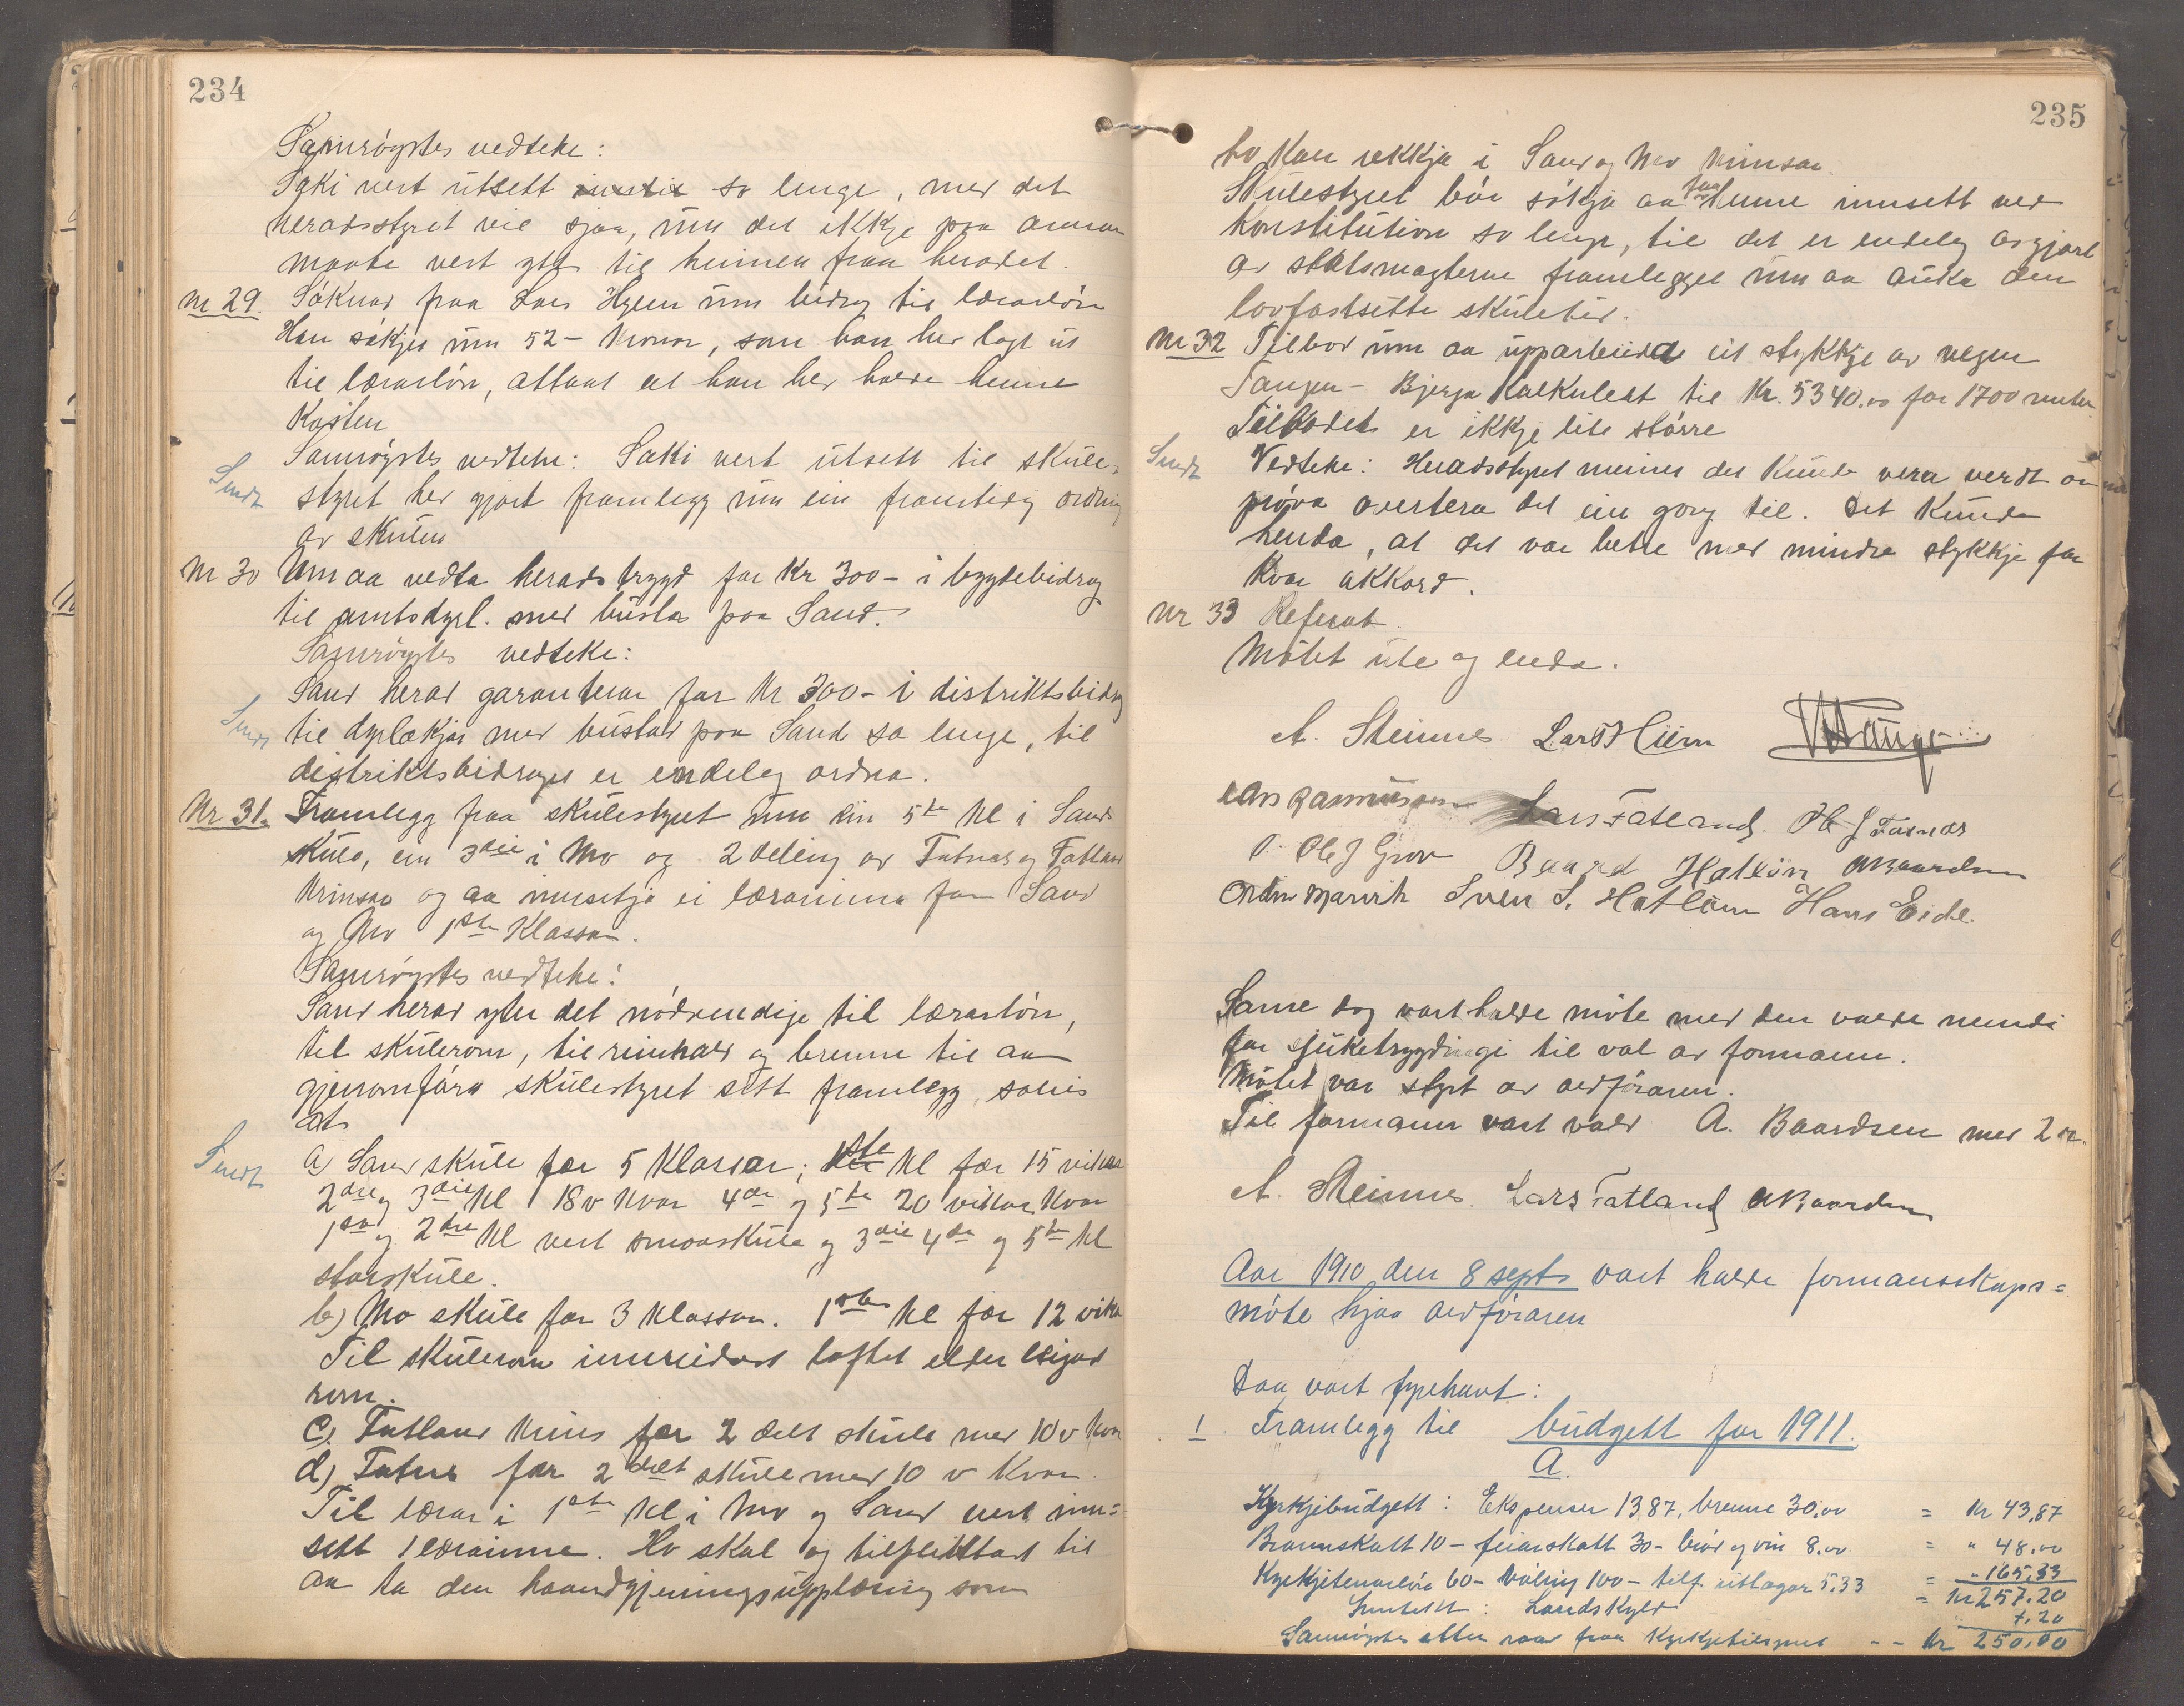 234
Samrøystes vedteke:
Saki vert utsett so lenge, med det
heradsstyret vil sjaa, um det ikkje paa annan
maate vert ytt til heimen fraa heradet.
Nr 29. Søknad fraa Lars um bidrag til lærarløn
Han søkjer um 52 – kronor, som han her lagt ut
til lærarløn, attaat at han her halde henne
Kosten
Samrøystes vedteke: Saki vert utsett til skule-
Sendt styret her gjort framlegg um ein framtidig ordning
av skulen
Nr 30 Um aa vedta heradstrygd for Kr 300 – i bygdebidrag
til amtsdyrl. med bustad paa Sand.
Samrøystes vedteke:
Sand herad garanterar for Kr 300 – i distriktsbidrag
Sendt til dyrlækjar med bustad paa Sand so lenge, til
distriktsbidraget er endeleg ordna.
Nr. 31. Framlegg fraa skulestyret um ein 5te kl i Sand
skule, ein 3die i Mo og 2 deling av Fatnes og Fatland
krinsar og aa innsetja ei lærarinna for Sand
og Mo 1ste Klassar.
Samrøystes vedteke:
Sand herad yter det nødvendige til lærarløn,
til skulerom, til reinhald og brenne til aa
gjenomføra skulestyret sitt framlegg, solis
at
Sendt a) Sand skule fær 5 Klassar; 1ste kl fær 15 vikur
2dre og 3die kl 18 v kvar 4de og 5te 20 vikur kvar
1ste og 2dre kl vert smaaskule og 3die 4de og 5te kl
storskule.
b) Mo skule fær 3 klassar. 1ste kl fær 12 vikur
Til skulerom innreidast loftet elder leigast
rom.
c). Fatland krins fær 2 delt skule med 10 v kvar
d) Fatnes fær 2 delt skule med 10 v kvar.
Til lærar i 1ste kl i Mo og Sand vert inn-
sett 1 lærarinne. Ho skal og tilpliktast til
aa ta den haandgjerningsupplæring som
235
ho kan rekkja i Sand og Mo krinsar.
Skulestyret bør søkja aa faa henne innsett ved
Konstitution so lenge, til det er endeleg avgjort
av statsmagterne framlegget um aa auka den
lovfastsette skuletid.
Nr 32 Tilbod um aa upparbeida eit stykkje av vegen
Tangen – Bjerga kalkulert til Kr. 5340.00 for 1700 meter
Tilbodet er ikkje lite større
Sendt Vedteke: Heradsstyret meiner det kunde vera verdt aa
prøva avertera det ein gong til. Det kunde
henda, at det var betre med mindre stykkje for
kvar akkord.
Nr 33 Referat.
Møtet ute og enda.
A. Steinnes Lars Hiim
Lars Rasmussen Lars Fatland
Ole J Grov Baard Hatløin ABaardsen
Sven S. Hatløin Hans Eide.
Same dag vart halde møte med den valde nemdi
for sjuketrygdingi til val av formann.
Møtet var styrt av ordføraren.
Til formann vart vald A. Baardsen med 2 r.
A. Steinnes. Lars Fatland ABaardsen
Aar 1910 den 8 septr vart halde formannskaps=
møte hjaa ordføraren
Daa vart fyrehavt:
1 Framlegg til budgett for 1911.
A.
Kyrkjebudgett: Ekspenser 13,87, brenne 30.00 = Kr 43,87
Brannskatt 10 – feiarskatt 30 – brød og vin 8.00 = " 48.00
Kyrkjetenarløn 60 – vøling 100 – tilf. utlagor 5.33 = " 165.33
= Kr 257.20
Inntekt: Landskyld 7.20
Samrøystes etter raad fraa Kyrkjetilsynet -- Kr 250.00